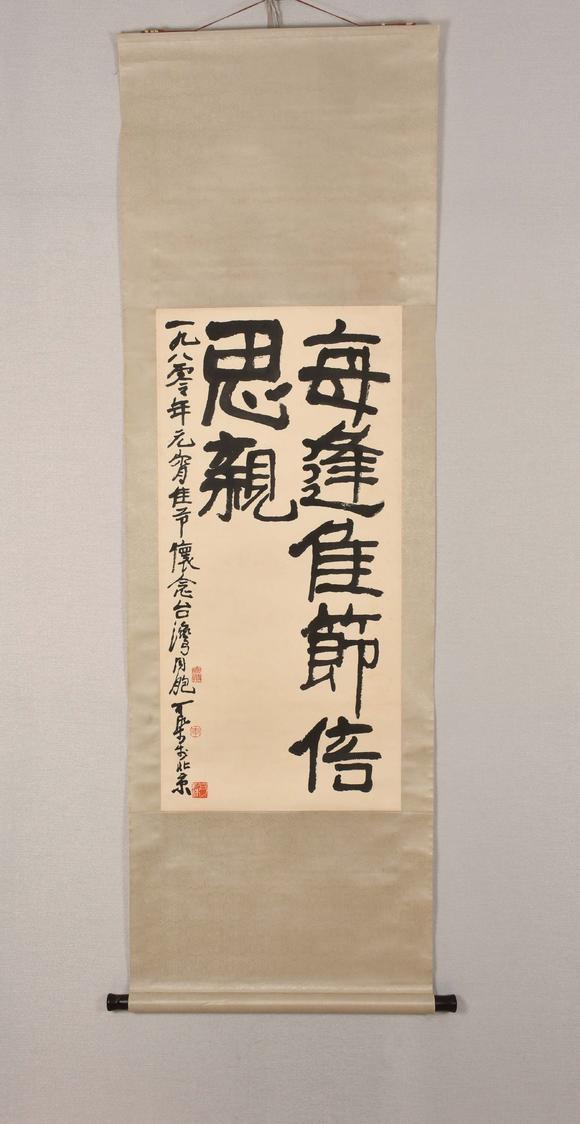 每逢佳節倍
思親
一九八零年元宵佳节懷念台灣同胞
於北京